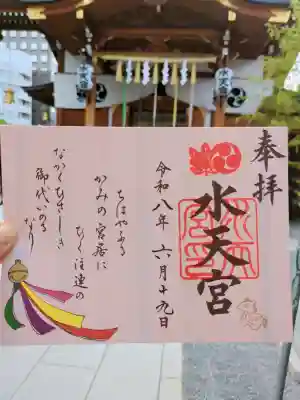 奉拝
水天宮
令和八年六月十九日
ちはやふる
かみの宮居に
ひく注連の
なかくひさしき
御代いのる
なり